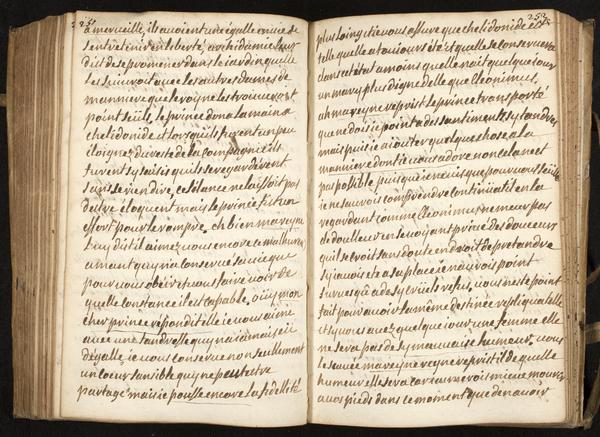 251
a merveille, ils avoient une égalle envie de
s'entretenir en liberté, archidame leur
dit de se promener dans le iardin quelle
les suivroit avec les autres dames de
manniere que le roy ne les trouveroit
point seuls, le prince dona la main a
chelidonide et lorsquils furent un peu
éloignez du reste de la compagnie ils
furent sy saisis quils se regarderent
sans se rien dire, ce silance ne laissoit pas
detre éloquent mais le prince fit un
effort pour le rompre, eh bien ma reyne
luy dit il aimez vous encore ce malheureux
amant quy na conservé sa vie que
pour vous obéir et vous faire voir de
quelle constance il est capable, ouy mon
cher prince répondit elle ie vous aime
avec une tandresse quy na iamais eü
dégalle, ie vous conserve non seullement
un coeur sansible quy ne peut etre
partagé mais ie pousse encore la fidellité
252
plus loing et ie vous assure que chelidonide est
telle quelle a touiours été et quelle se conservera
dans cet état a moins quelle nait quelque iour
un mary plus digne delle que Cleonimus,
ah ma reyne reprit le prince transporté
que ne dois ie point a des santiments sy tandres
mais puis ie aiouter quelque chose a la
manniere dont ie vous adore non cela nest
pas possible puisque ie ne vis que pour vous seulle
ie ne sauroy comprendre continüa til en la
regardant comme Cleonimus ne meurt pas
de doulleur en se voyant privé des douceurs
quil se croit sans doute en droit de pretandre
sy iavois eté a sa place ie naurois point
survescu a de sy cruels refus, vous neste point
fait pour avoir la même destinée repliqua telle
et sy vous avez quelque iour une femme elle
ne sera pas de sy mauvaise humeur, vous
le savez ma reyne reprit il de quelle
humeur elle sera car iaimerois mieux mourir
a vos pieds dans ce moment que den avoir